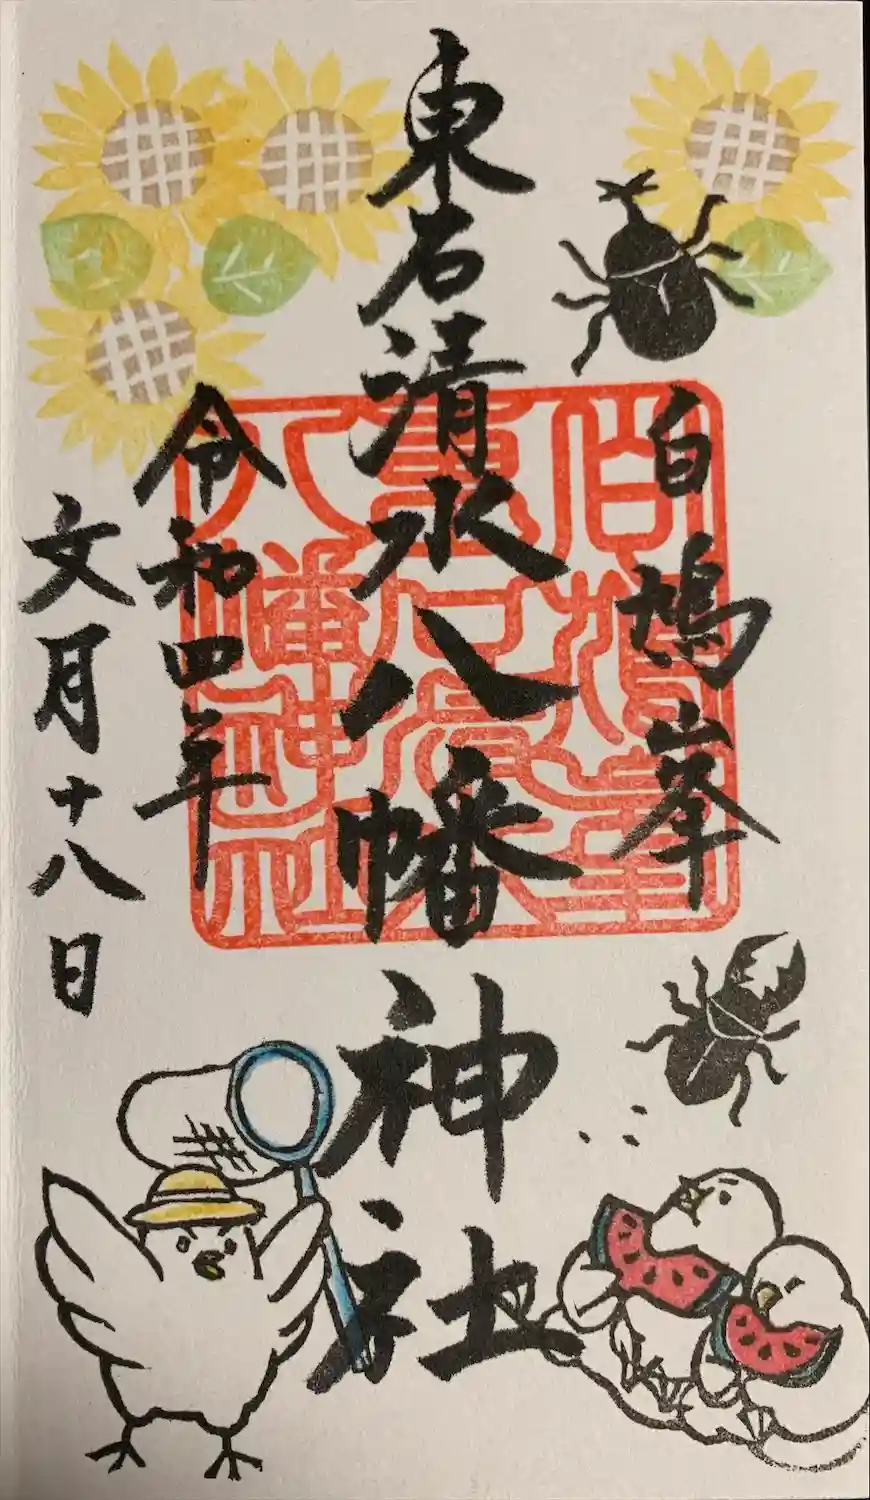 白鳩峯
東石清水八幡神社
令和四年
文月十八日
白鳩峯
東石清水
八幡神社